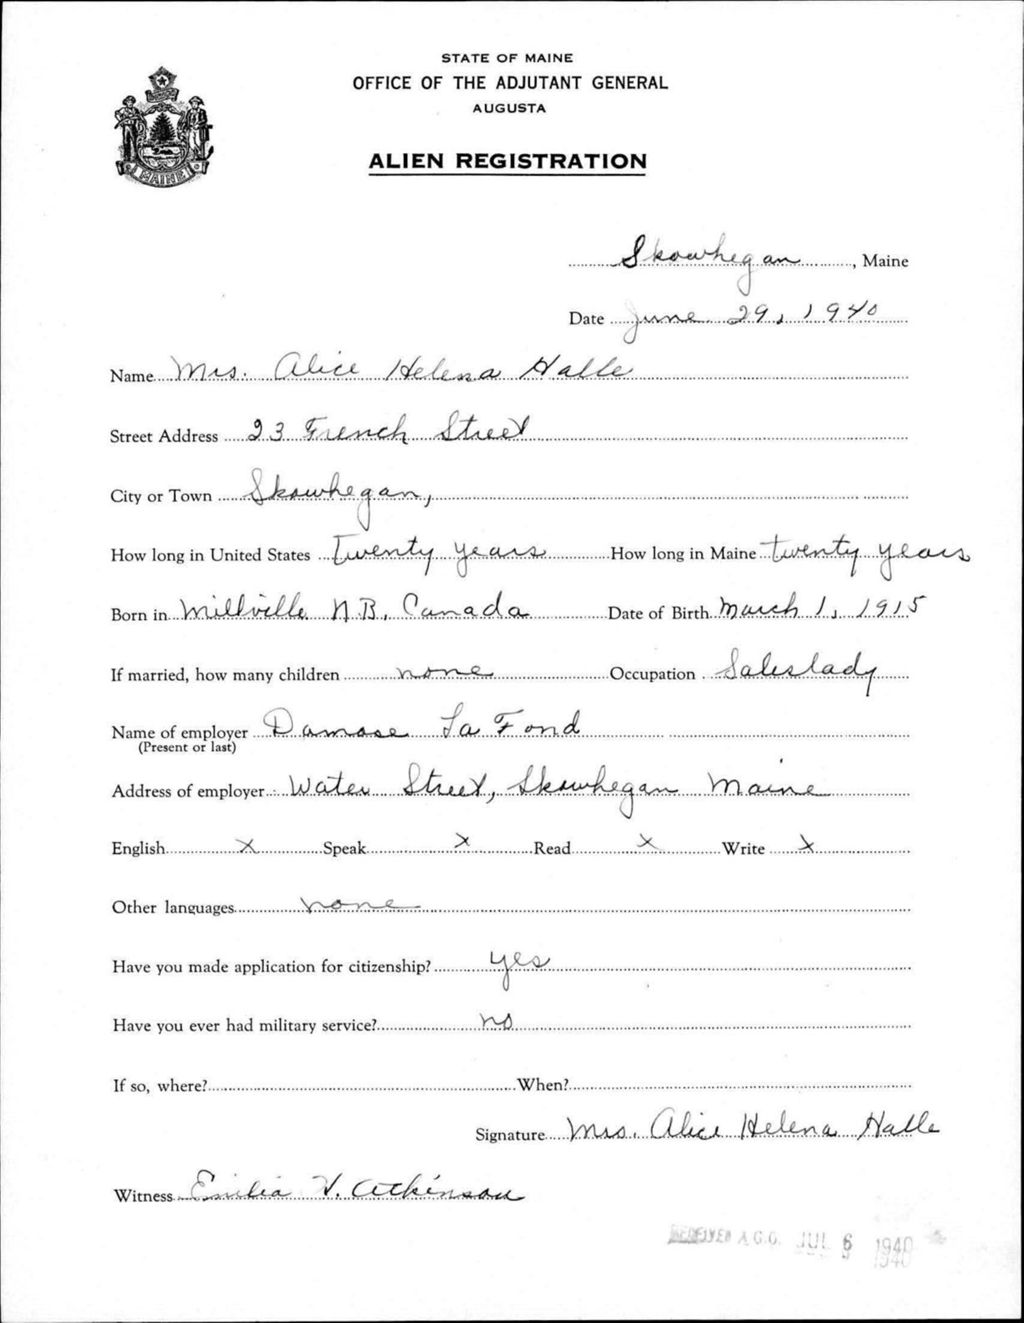 STATE OF MAINE
OFFICE OF THE ADJUTANT GENERAL
AUGUSTA
ALIEN REGISTRATION
MAINE
Skowhegan, Maine
Date June 29, 1940
Name Mrs. Alice Helena Halle
Street Address 23 French Street
City or Town Skowhegan,
How long in United States Twenty years How long in Maine twenty years
Born in Millville N.B., Canada Date of Birth March 1, 1915
If married, how many children none Occupation Saleslady
Name of employer Damase La Fond
(Present or last)
Address of employer Water Street, Skowhegan Maine
English X Speak X Read X Write X
Other languages none
Have you made application for citizenship? yes
Have you ever had military service? no
If so, where? When?
Signature Mrs. Alice Helena Halle
Witness Emilia V. Atkinson
RECEIVED A.G.O. JUL 6 1940